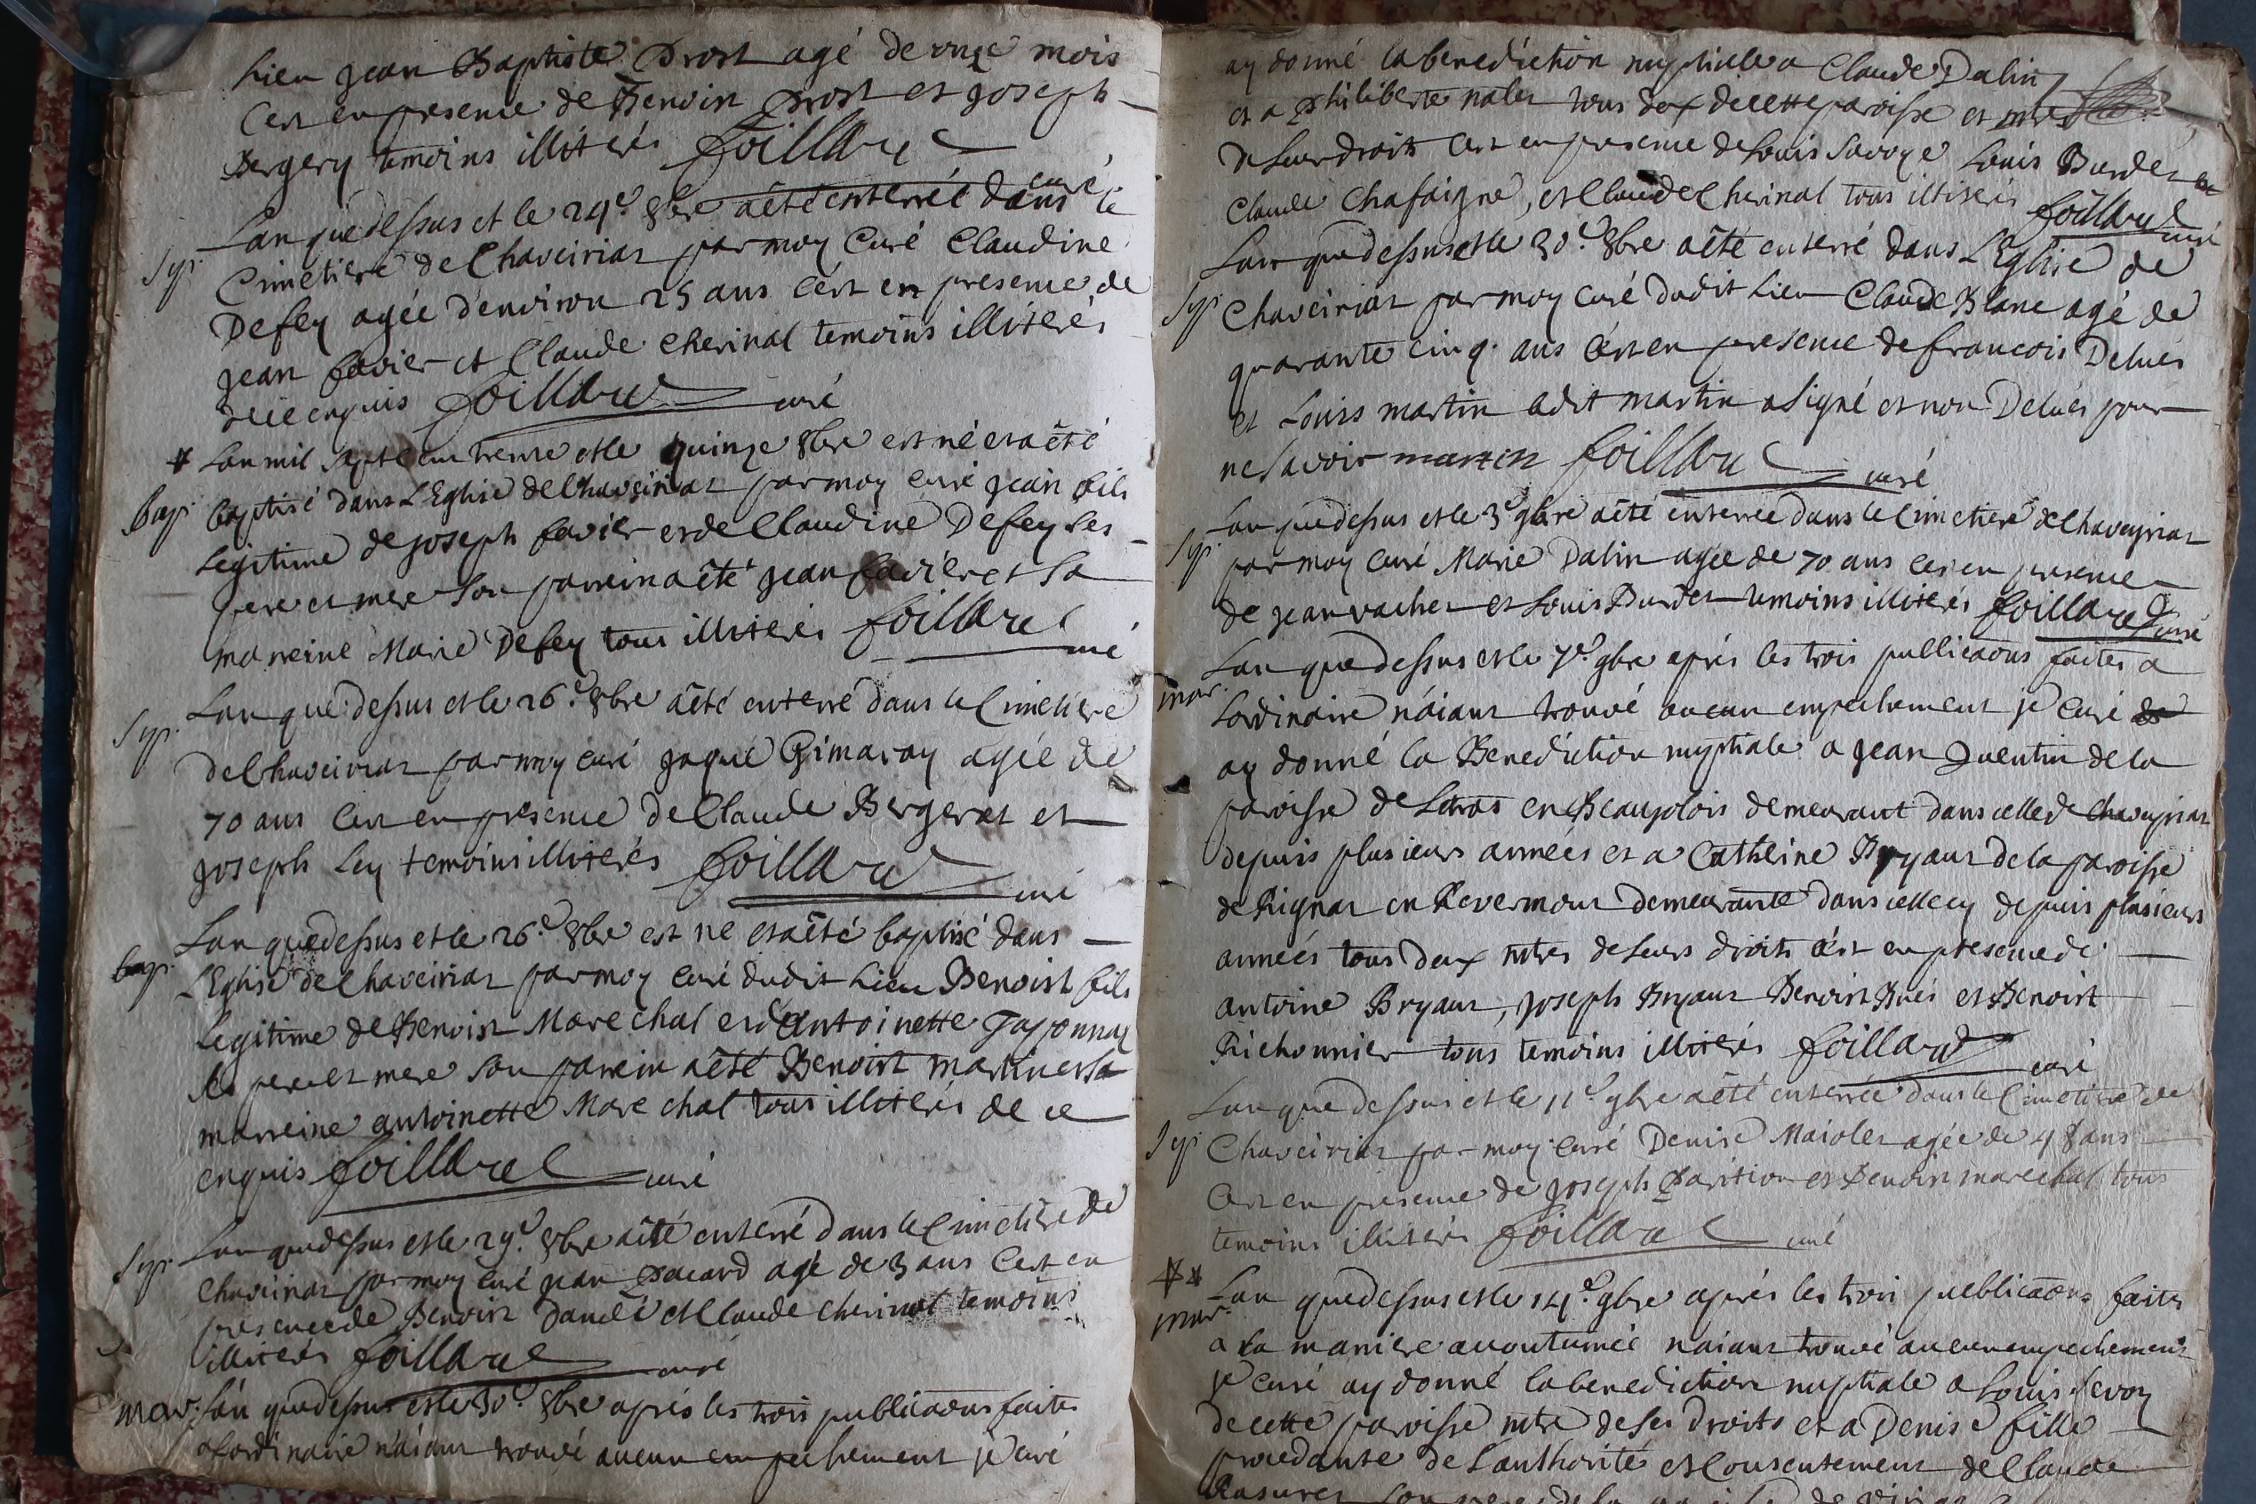 lieu jean Baptiste Prost agé de onze mois
C'est en presence de Benoist Prost et joseph
Bergery temoins illiterés foillard
curé
Sep. Lan que dessus et le 24e 8bre a êté enterrée dans le
Cimetiere de Chaveiriat par moy Curé Claudine
Defey agée denviron 25 ans c'est en presence de
jean favier et Claude cherinal temoins illiterés
de ce enquis foillard curé
* Lan mil sept cent trente et le quinze 8bre est né et a êté
bap. baptisé dans L'Eglise de Chaveiriat par moy curé jean fils
legitime de joseph favier et de Claudine Defey ses
pere et mere son parrein a êté jean favier et sa
marreine Marie Defey tous illiterés foillard
curé
Sep. Lan que dessus et le 26e 8bre a êté enterré dans le Cimetiere
de Chaveiriat par moy curé jaque Gimaray agée de
70 ans c'est en presence de Claude Bergeret et
joseph Ley temoins illiterés foillard
curé
Lan que dessus et le 26e 8bre est né et a êté baptisé dans
bap. L'Eglise de Chaveiriat par moy curé dudit lieu Benoist fils
legitime de Benoist Marechal et d'Antoinette
ses pere et mere son parrein a êté Benoist martin et sa
marreine antoinette Marechal tous illiterés de ce
enquis foillard curé
Sep. Lan que dessus et le 29e 8bre a êté enterré dans le Cimetiere de
Chaveiriat par moy curé jean Pacard agé de 3 ans C'est en
presence de Benoist Dandé et Claude cherinal temoins
illiterés foillard curé
mar. Lan que dessus et le 30e 8bre aprés les trois publicaons faites
a lordinaire n'aiant trouvé aucun empechement je curé
ay donné la benediction nuptiale a Claude Dalin
et a philiberte nalet tous deux de cette paroisse et mtres
de leur droits c'est en presence de Louis Savoye Louis Burdet et
Claude Chafaigne, et Claude Cherinal tous illiterés foillard
curé
Lan que dessus et le 30e 8bre a êté enterré dans L'Eglise de
Sep. Chaveiriat par moy curé dudit lieu Claude Blanc agé de
quarante cinq ans c'est en presence de francois Delués
et Louis martin ledit martin a signé et non Delués pour
ne savoir marten foillard curé
Lan que dessus et le 3e 9bre a êté enterrée dans le Cimetiere de Chaveyriat
Sep. par moy curé Marie Dalin agée de 70 ans c'est en presence
de jean vacher et Louis Burdet temoins illiterés foillard
curé
Lan que dessus et le 7e 9bre aprés les trois publicaons faites a
mar. Lordinaire n'áiant trouvé aucun empechement je curé
ay donné la Benediction nuptiale a jean Quentin de la
paroisse de en Beaujolois demeurant dans celle de Chaveyriat
depuis plusieurs années et a Catherine Bryaut de la paroisse
de Rignat en Revermont demeurante dans celle cy depuis plusieurs
années tous deux mtres de leurs droits c'est en presence de
antoine Bryaut, joseph Bryaut Benoist Bués et Benoist
Richonnier tous temoins illiterés foillard
curé
Lan que dessus et le 11e 9bre a êté enterrée dans le Cimetiere de
Sep. Chaveiriat par moy curé Denise Maiolet agée de 48 ans
C'est en presence de joseph Parition et Benoist marechal tous
temoins illiterés foillard curé
** Lan que dessus et le 14e 9bre aprés les trois publicaons faites
mar. a la maniere accoutumée n'aiant trouvé aucun empechement
je curé ay donné la benediction nuptiale a Louis Sevoy
de cette paroisse mtre de ses droits et a Denise fille
procedante de l'authorité et Consentement de Claude